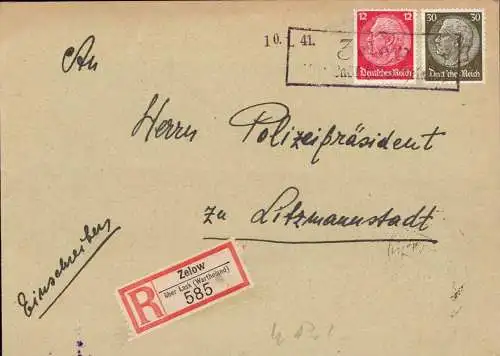 12 30
10. 41.
Deutsches Reich Deutsches Reich
An
Herrn Polizeipräsident
zu Litzmannstadt
Einschreiben
R
Zelow
über Lask (Wartheland)
585